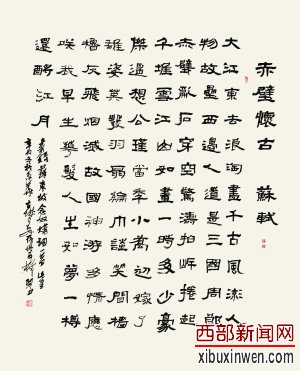 赤壁懷古 蘇軾
大江東去浪淘盡千古風流人
物故壘西邊人道是三國周郎
赤壁亂石穿空驚濤拍岸捲起
千堆雪江山如畫一時多少豪
傑遙想公瑾當年小喬初嫁了
雄姿英發羽扇綸巾談笑間檣
櫓灰飛煙滅故國神遊多情應
咲我早生華髮人生如夢一樽
還酹江月
西部新闻网
xibuxinwen.com